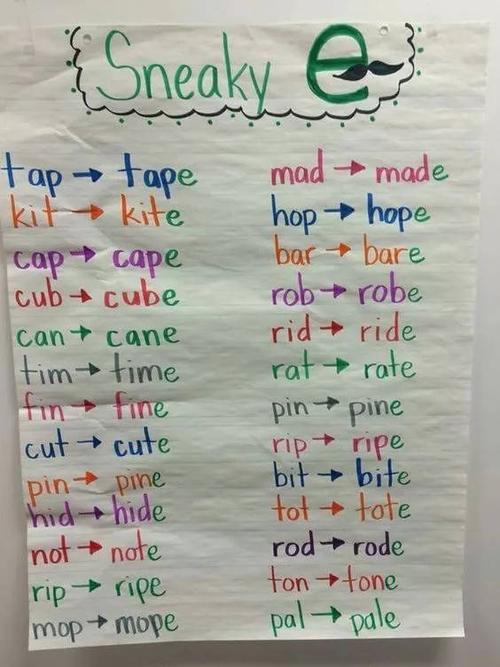 Sneaky e
tap → tape
kit → kite
cap → cape
cub → cube
can → cane
tim → time
fin → fine
cut → cute
pin → pine
hid → hide
not → note
rip → ripe
mop → mope
mad → made
hop → hope
bar → bare
rob → robe
rid → ride
rat → rate
pin → pine
rip → ripe
bit → bite
tot → tote
rod → rode
ton → tone
pal → pale